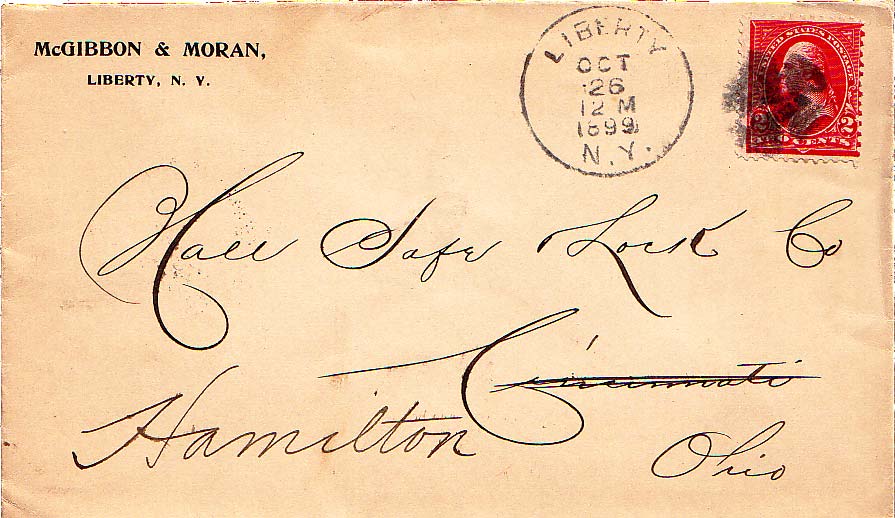 McGIBBON & MORAN,
LIBERTY, N. Y.
LIBERTY
OCT
26
12 M
1899
N.Y.
UNITED STATES POSTAGE
2 2
TWO CENTS
Hall Safe & Lock Co
Cincinnati
Hamilton
Ohio